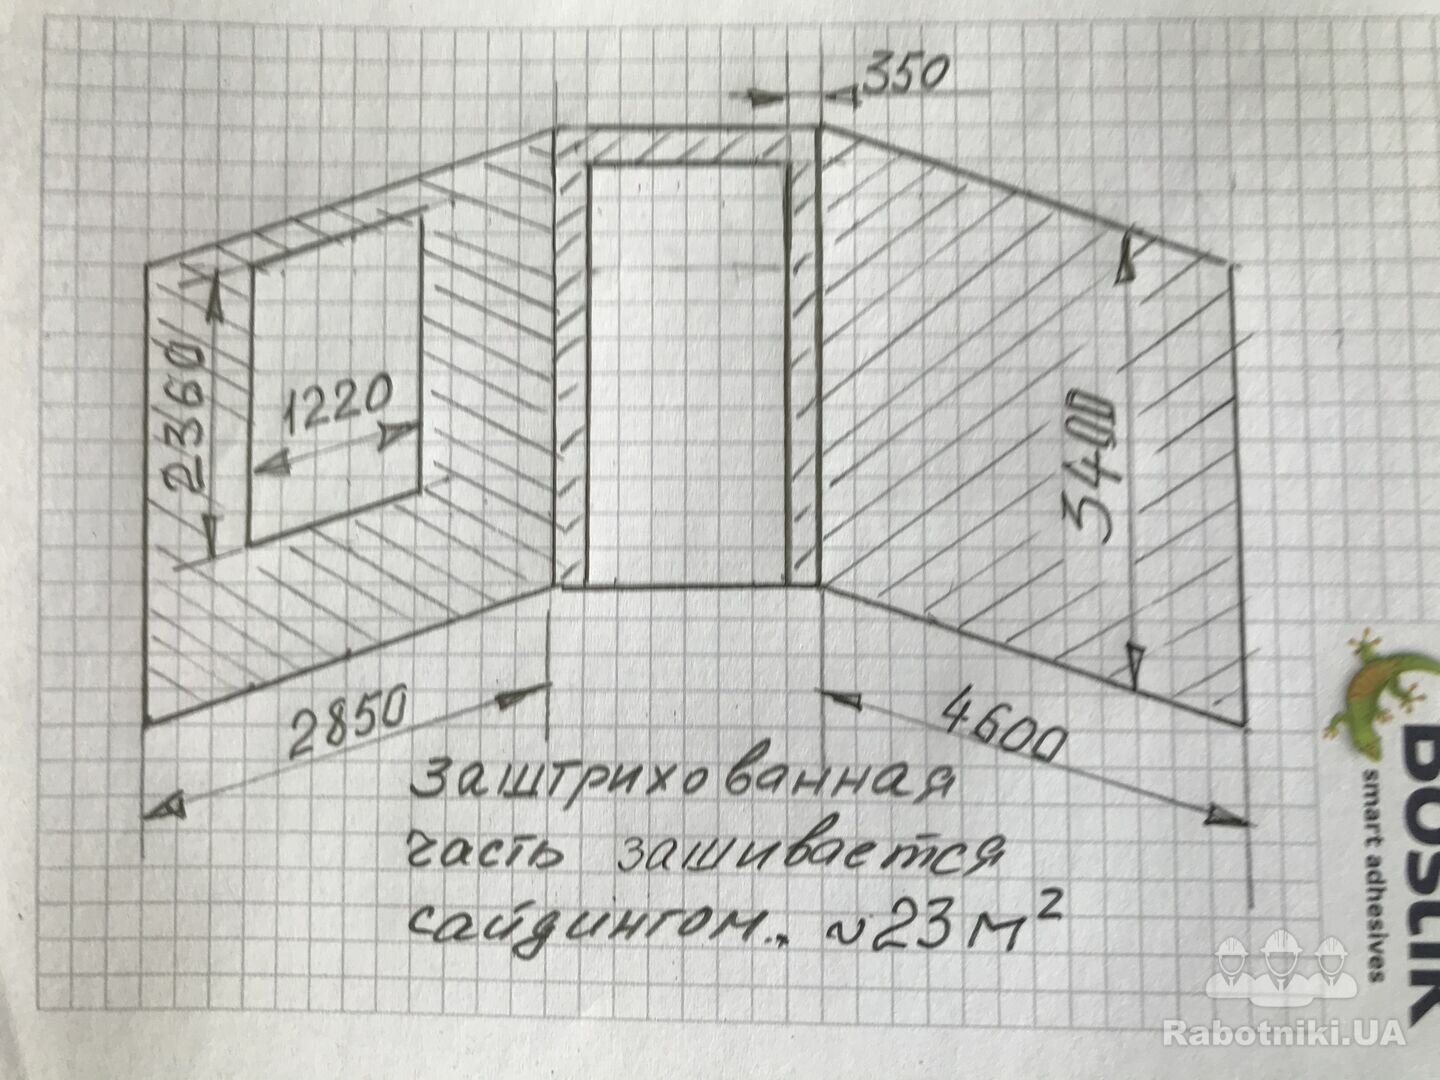 350
2360
1220
3400
2850
4600
заштрихованная
часть зашивается
сайдингом.. ~23м²
BOSTIK
smart adhesives
Rabotniki.UA